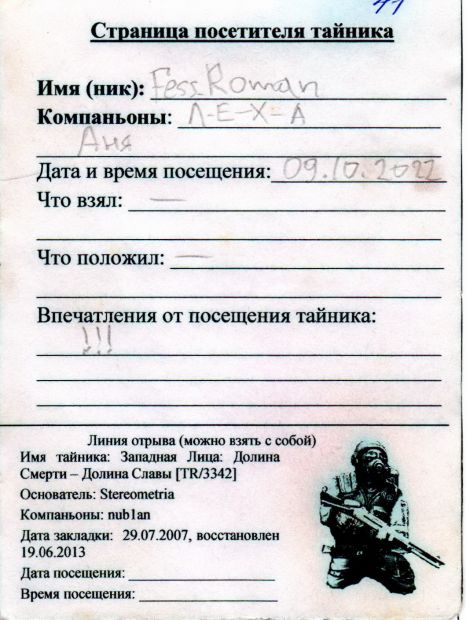 41
Страница посетителя тайника
Имя (ник): Fess_Roman
Компаньоны: Л-Е-Х-А
Аня
Дата и время посещения: 09.10.2022
Что взял: —
Что положил: —
Впечатления от посещения тайника:
!!!
Линия отрыва (можно взять с собой)
Имя тайника: Западная Лица: Долина
Смерти – Долина Славы [TR/3342]
Основатель: Stereometria
Компаньоны: nub1an
Дата закладки: 29.07.2007, восстановлен
19.06.2013
Дата посещения:
Время посещения: